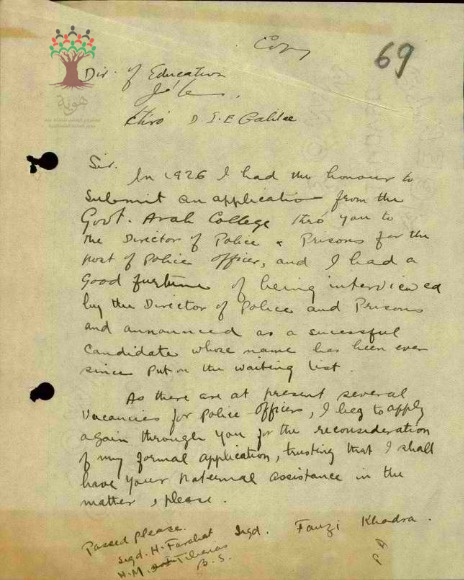 Copy
69
Dir. of Education
J'lem.
Thro' D I E Galilee
Sir.
In 1926 I had the honour to
Submit an application from the
Govt. Arab College thro you to
The Director of Police & Prisons for the
post of Police officer, and I had a
Good fortune of being interviewed
by the Director of Police and Prisons
and announced as a sucessful
Candidate whose name has been ever
since put on the waiting list.
As there are at present several
Vacancies for Police officers, I beg to apply
again through you for the reconsideration
of my formal application, trusting that I shall
have your Paternal assistance in the
matter, please.
Passed please.
Sigd. Fauzi Khadra.
Sigd. H. Farahat
H.M. Tiberias
B. S.